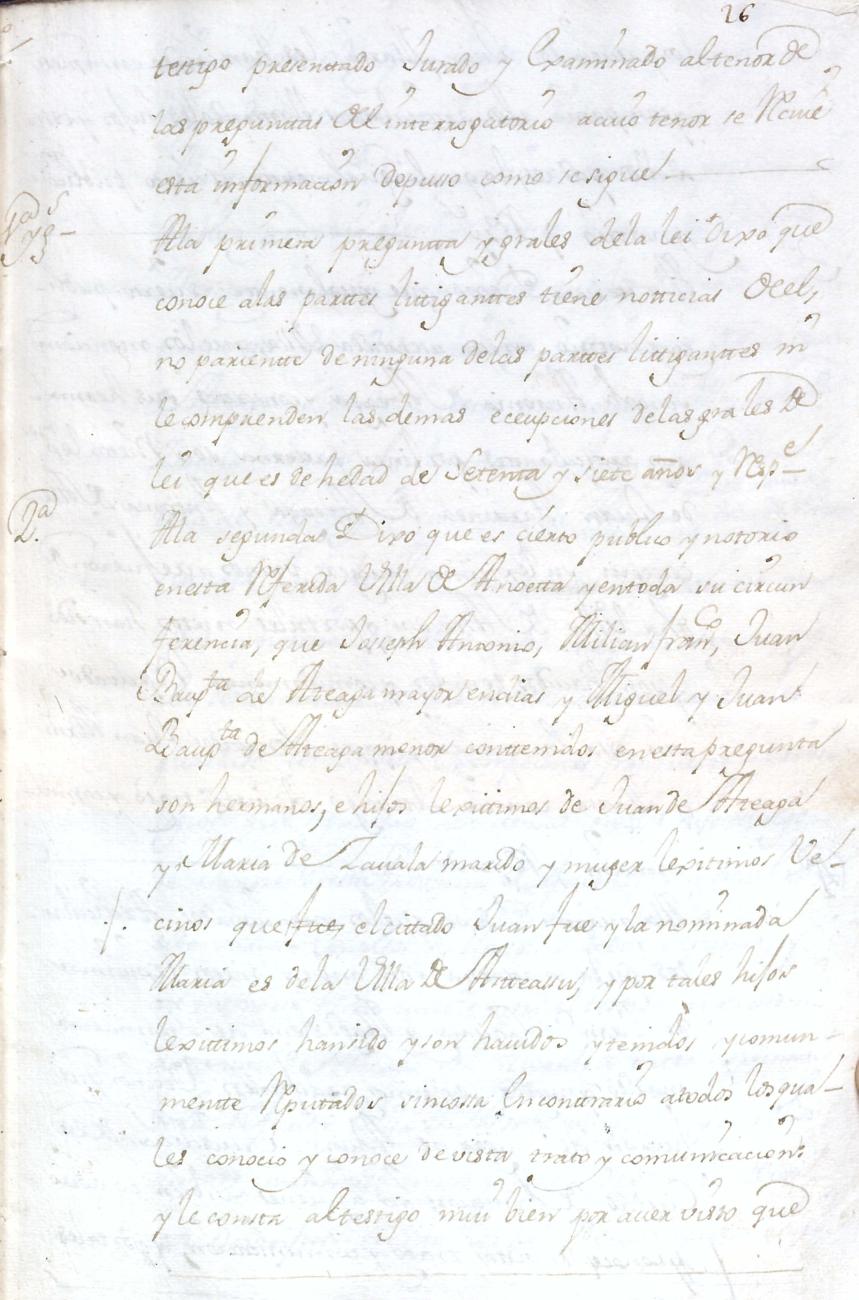 26
testigo presenttado Jurado y Examinado altenor de
las preguntas del interrogatorio acuio tenor se Reciue
esta informacion depusso como se sigue
1ª y gs
Ala primera pregunta y grales dela lei Dixo que
conoce alas parttes littiganttes tiene notticias del,
no parientte de ninguna delas parttes littiganttes ni
le comprenden las demas ecepciones delas grales de
lei que es de hedad de Settenta y siete años y Respe
2ª
Ala segunda Dixo que es cierto publico y notorio
enesta Referida Villa de Anoetta y entoda su circun
ferencia, que Joseph Antonio, Milian franco, Juan
Baupta de Atteaga mayor endias y Miguel y Juan
Baupta de Atteaga menor conttenidos enesta pregunta
son hermanos, e hijos lexittimos de Juan de Atteaga
y Maria de Zauala marido y muger lexitimos Ve-
cinos que fues elcittado Juan fue y la nominada
Maria es dela Villa de Atteassu, y por tales hijos
lexittimos hansido y son hauidos y tenidos y comun-
mentte Reputados sincossa Encontrario atodos los qua-
les conocio y conoce de vista tratto y comunicacion
y le consta altestigo mui bien por auer visto que